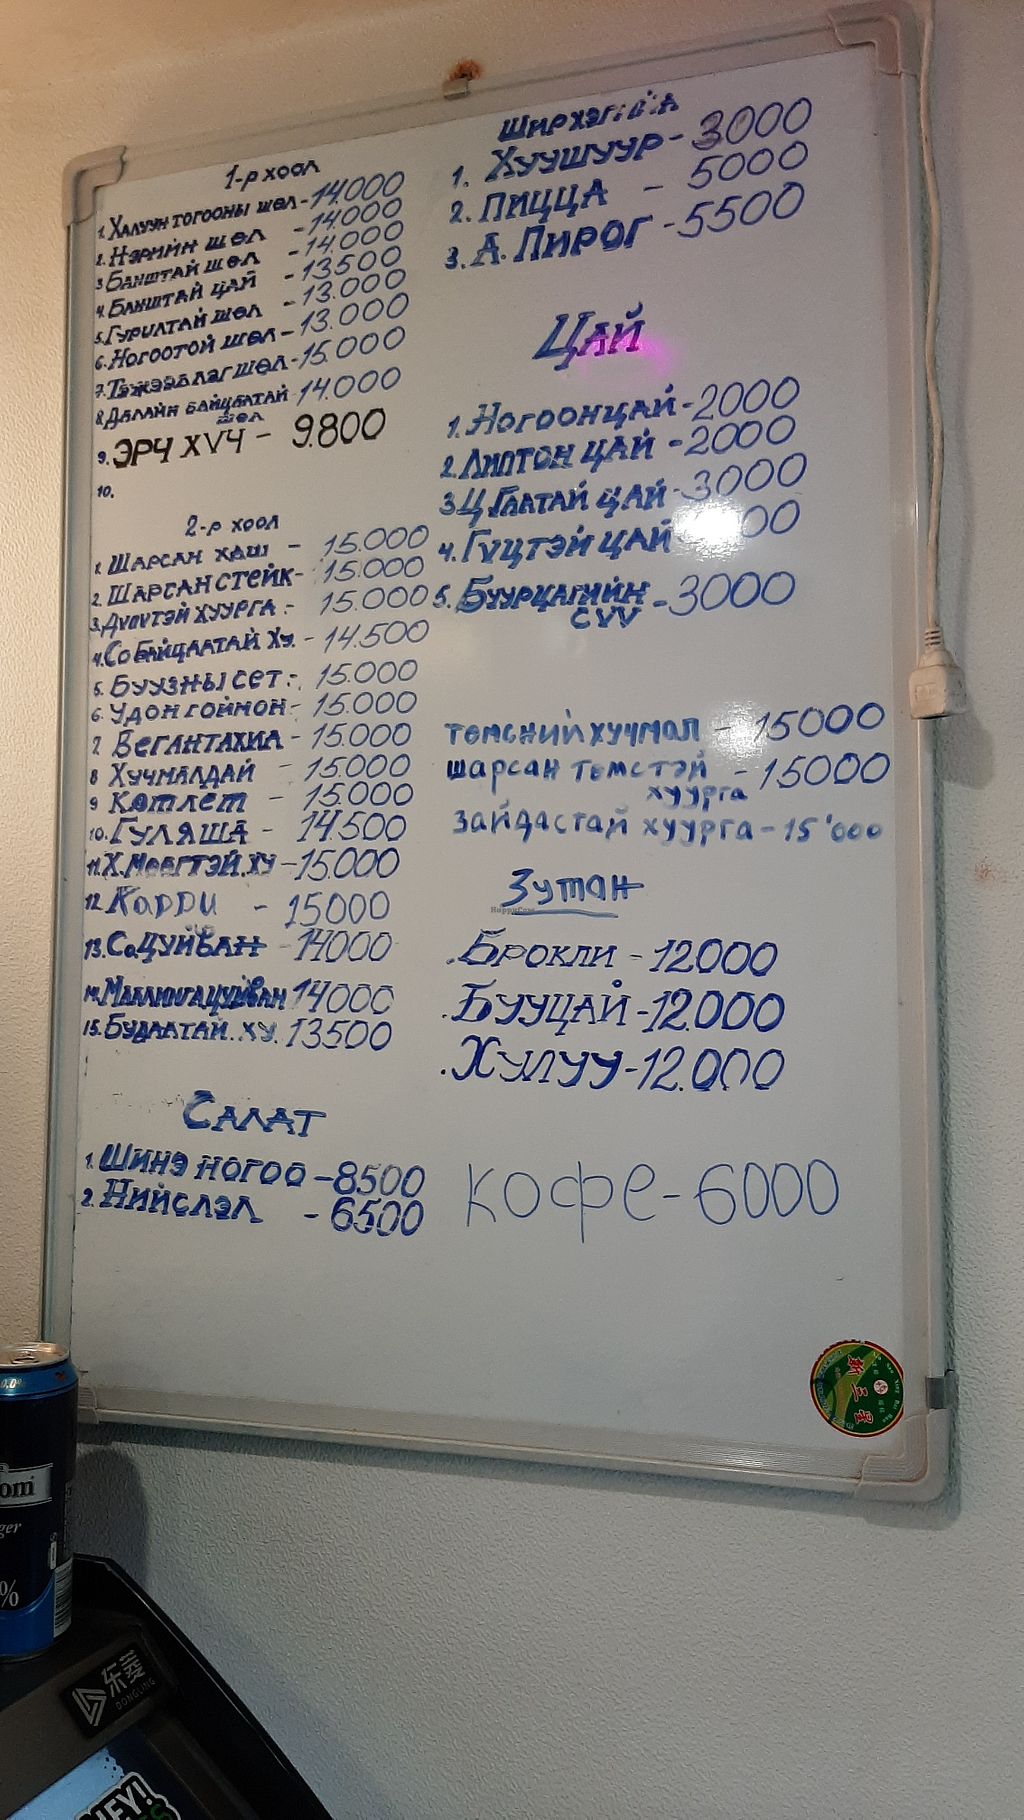 1-р хоол
1. Халуун тогооны шөл - 14.000
2. Нэрийн шөл - 14.000
3 Банштай шөл - 14.000
4. Банштай цай - 13500
5. Гурилтай шөл - 13.000
6. Ногоотой шөл - 13.000
7. Тэжээллэг шөл - 15.000
8. Далайн байцаатай шөл - 14.000
9. ЭРЧ ХVЧ - 9.800
10.
2-р хоол
1. Шарсан хаш - 15.000
2. Шарсан стейк - 15.000
3. Дүпүтэй хуурга - 15.000
4. Со байцаатай ху. - 14.500
5. Буузны сет - 15.000
6. Удон гоймон - 15.000
7. Вегантахиа - 15.000
8 Хучмалдай - 15.000
9 Котлет - 15.000
10. Гуляша - 14.500
11 Х. Мөөгтэй. ху - 15.000
12. Карри - 15000
13. Со. Цуйван - 14000
14. цуйван 14000
15. Будаатай. ху. 13500
Салат
1. Шинэ ногоо - 8500
2. Нийслэл - 6500
Ширхэг
1. Хуушуур - 3000
2. Пицца - 5000
3. А. Пирог - 5500
Цай
1. Ногоон цай - 2000
2. Липтон цай - 2000
3 Ц. Гаатай цай - 3000
4. Гүцтэй цай
5. Буурцагийн сүү - 3000
төмсний хучмал - 15000
шарсан төмстэй хуурга - 15000
зайдастай хуурга - 15'000
Зутан
. Брокли - 12.000
. Бууцай - 12.000
. Хулуу - 12.000
кофе - 6000
HappyCow
0.0%
om
ger
%
东菱
DONGLING
HEY!